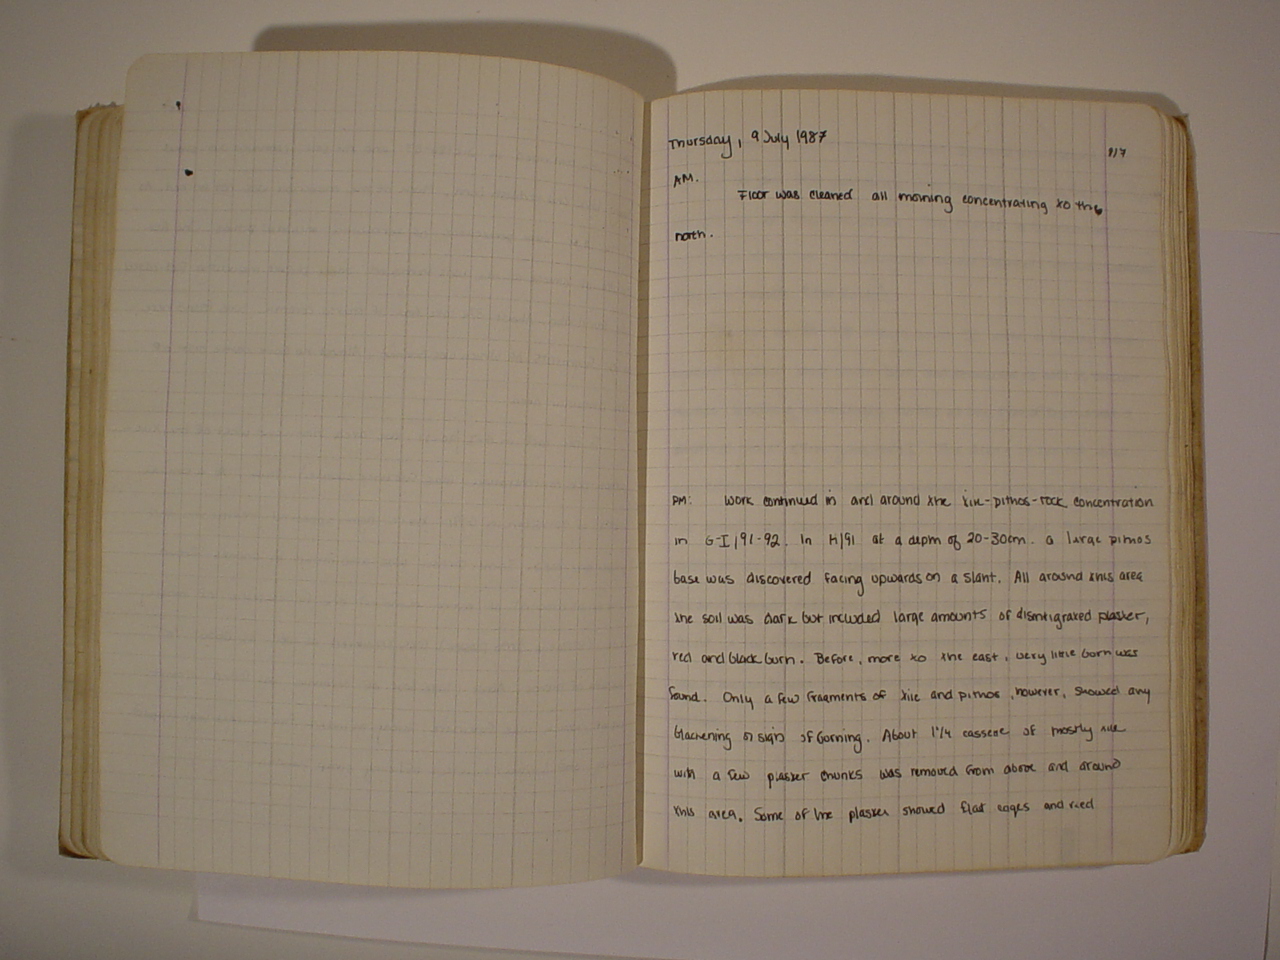 Thursday, 9 July 1987
AM.
Floor was cleaned all morning concentrating to the
north.
PM: Work continued in and around the tile-pithos-rock concentration
in G-I/91-92. In H/91 at a depth of 20-30cm. a large pithos
base was discovered facing upwards on a slant. All around this area
the soil was dark but included large amounts of disintigrated plaster,
red and black burn. Before, more to the east, very little burn was
found. Only a few fragments of tile and pithos, however, showed any
blackening or signs of burning. About 1 1/4 cassene of mostly tile
with a few plaster chunks was removed from above and around
this area. Some of the plaster showed flat edges and reed